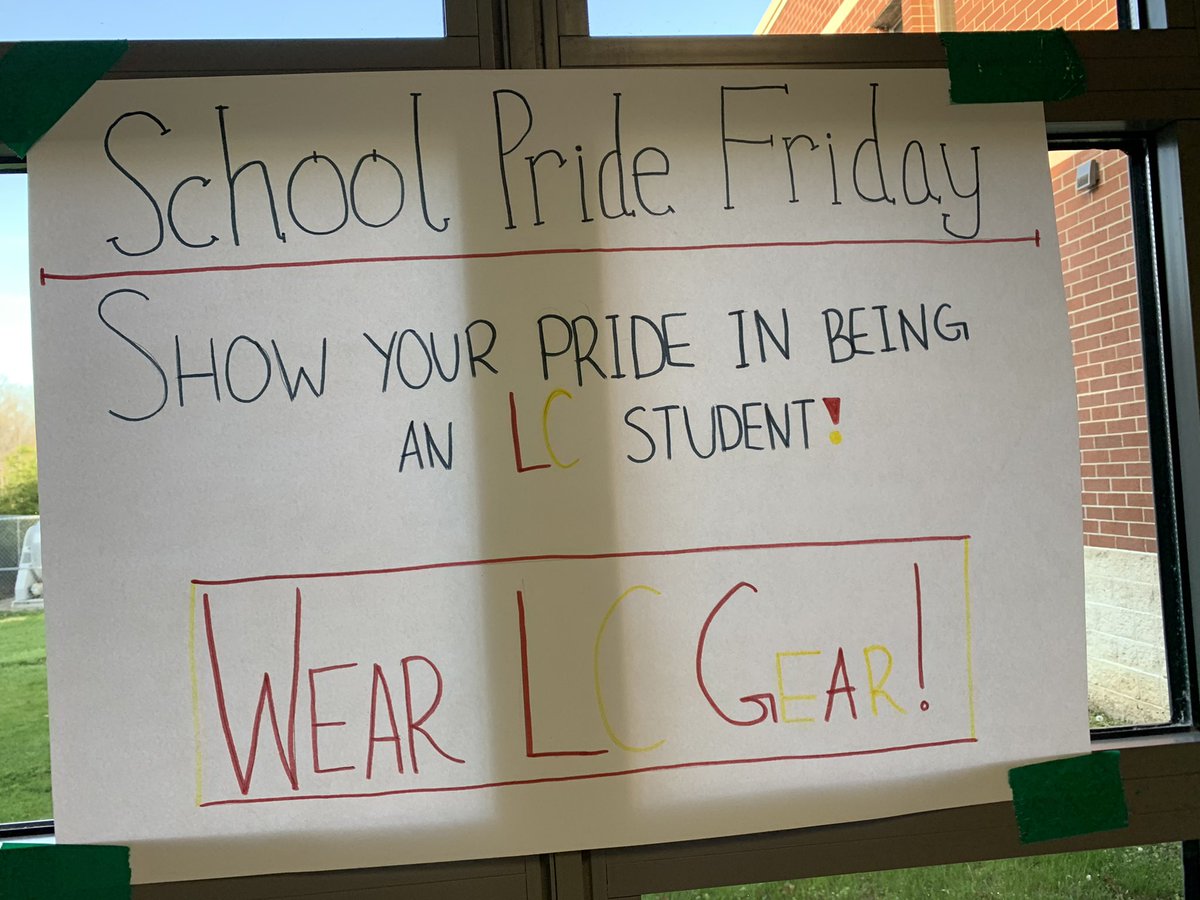 School Pride Friday
SHOW YOUR PRIDE IN BEING
AN LC STUDENT!
WEAR LC GEAR!